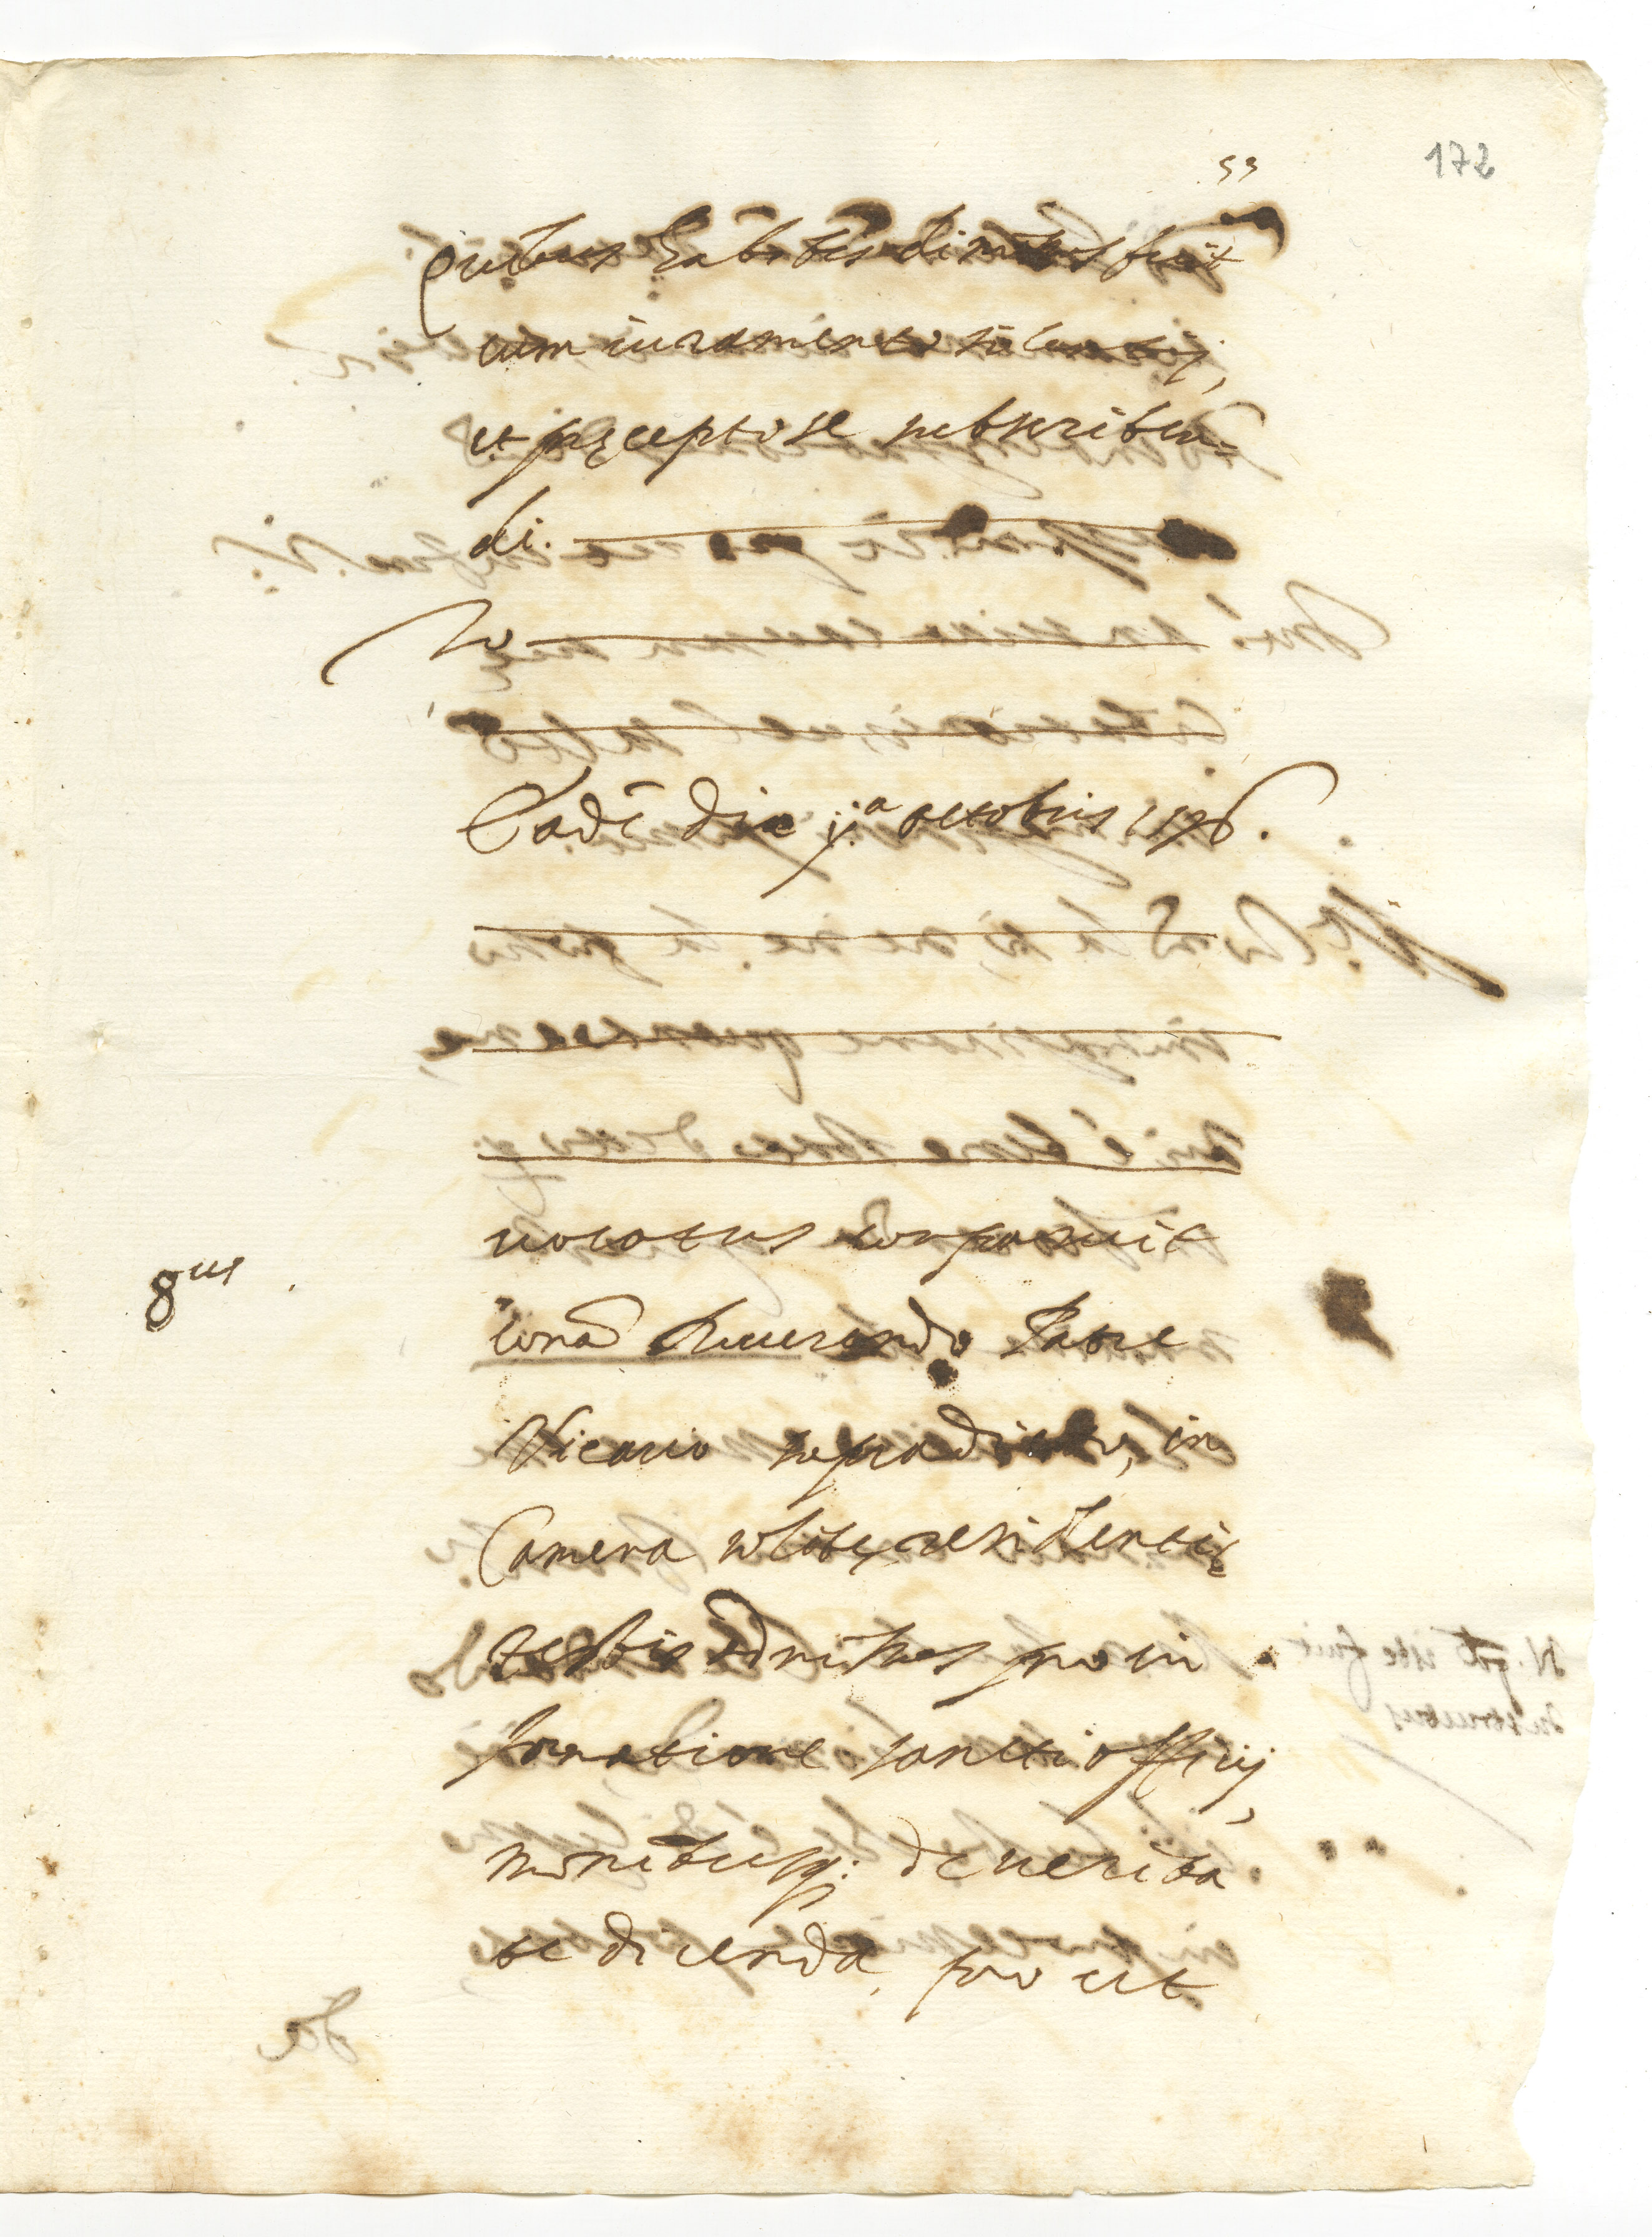 53
172
Quibus habitis dimissus fuit
cum iuramento silentij,
et pręcepto se subscriben=
di.
Io
Eadē die j.a octobris 1596.
uocatus comparuit
8us
corā Reuerendo Patre
Vicario supradicto, in
Camera solitę residentię
testis admissus pro in
formatione sancti officij,
monitusq; de uerita
te dicenda, pro ut